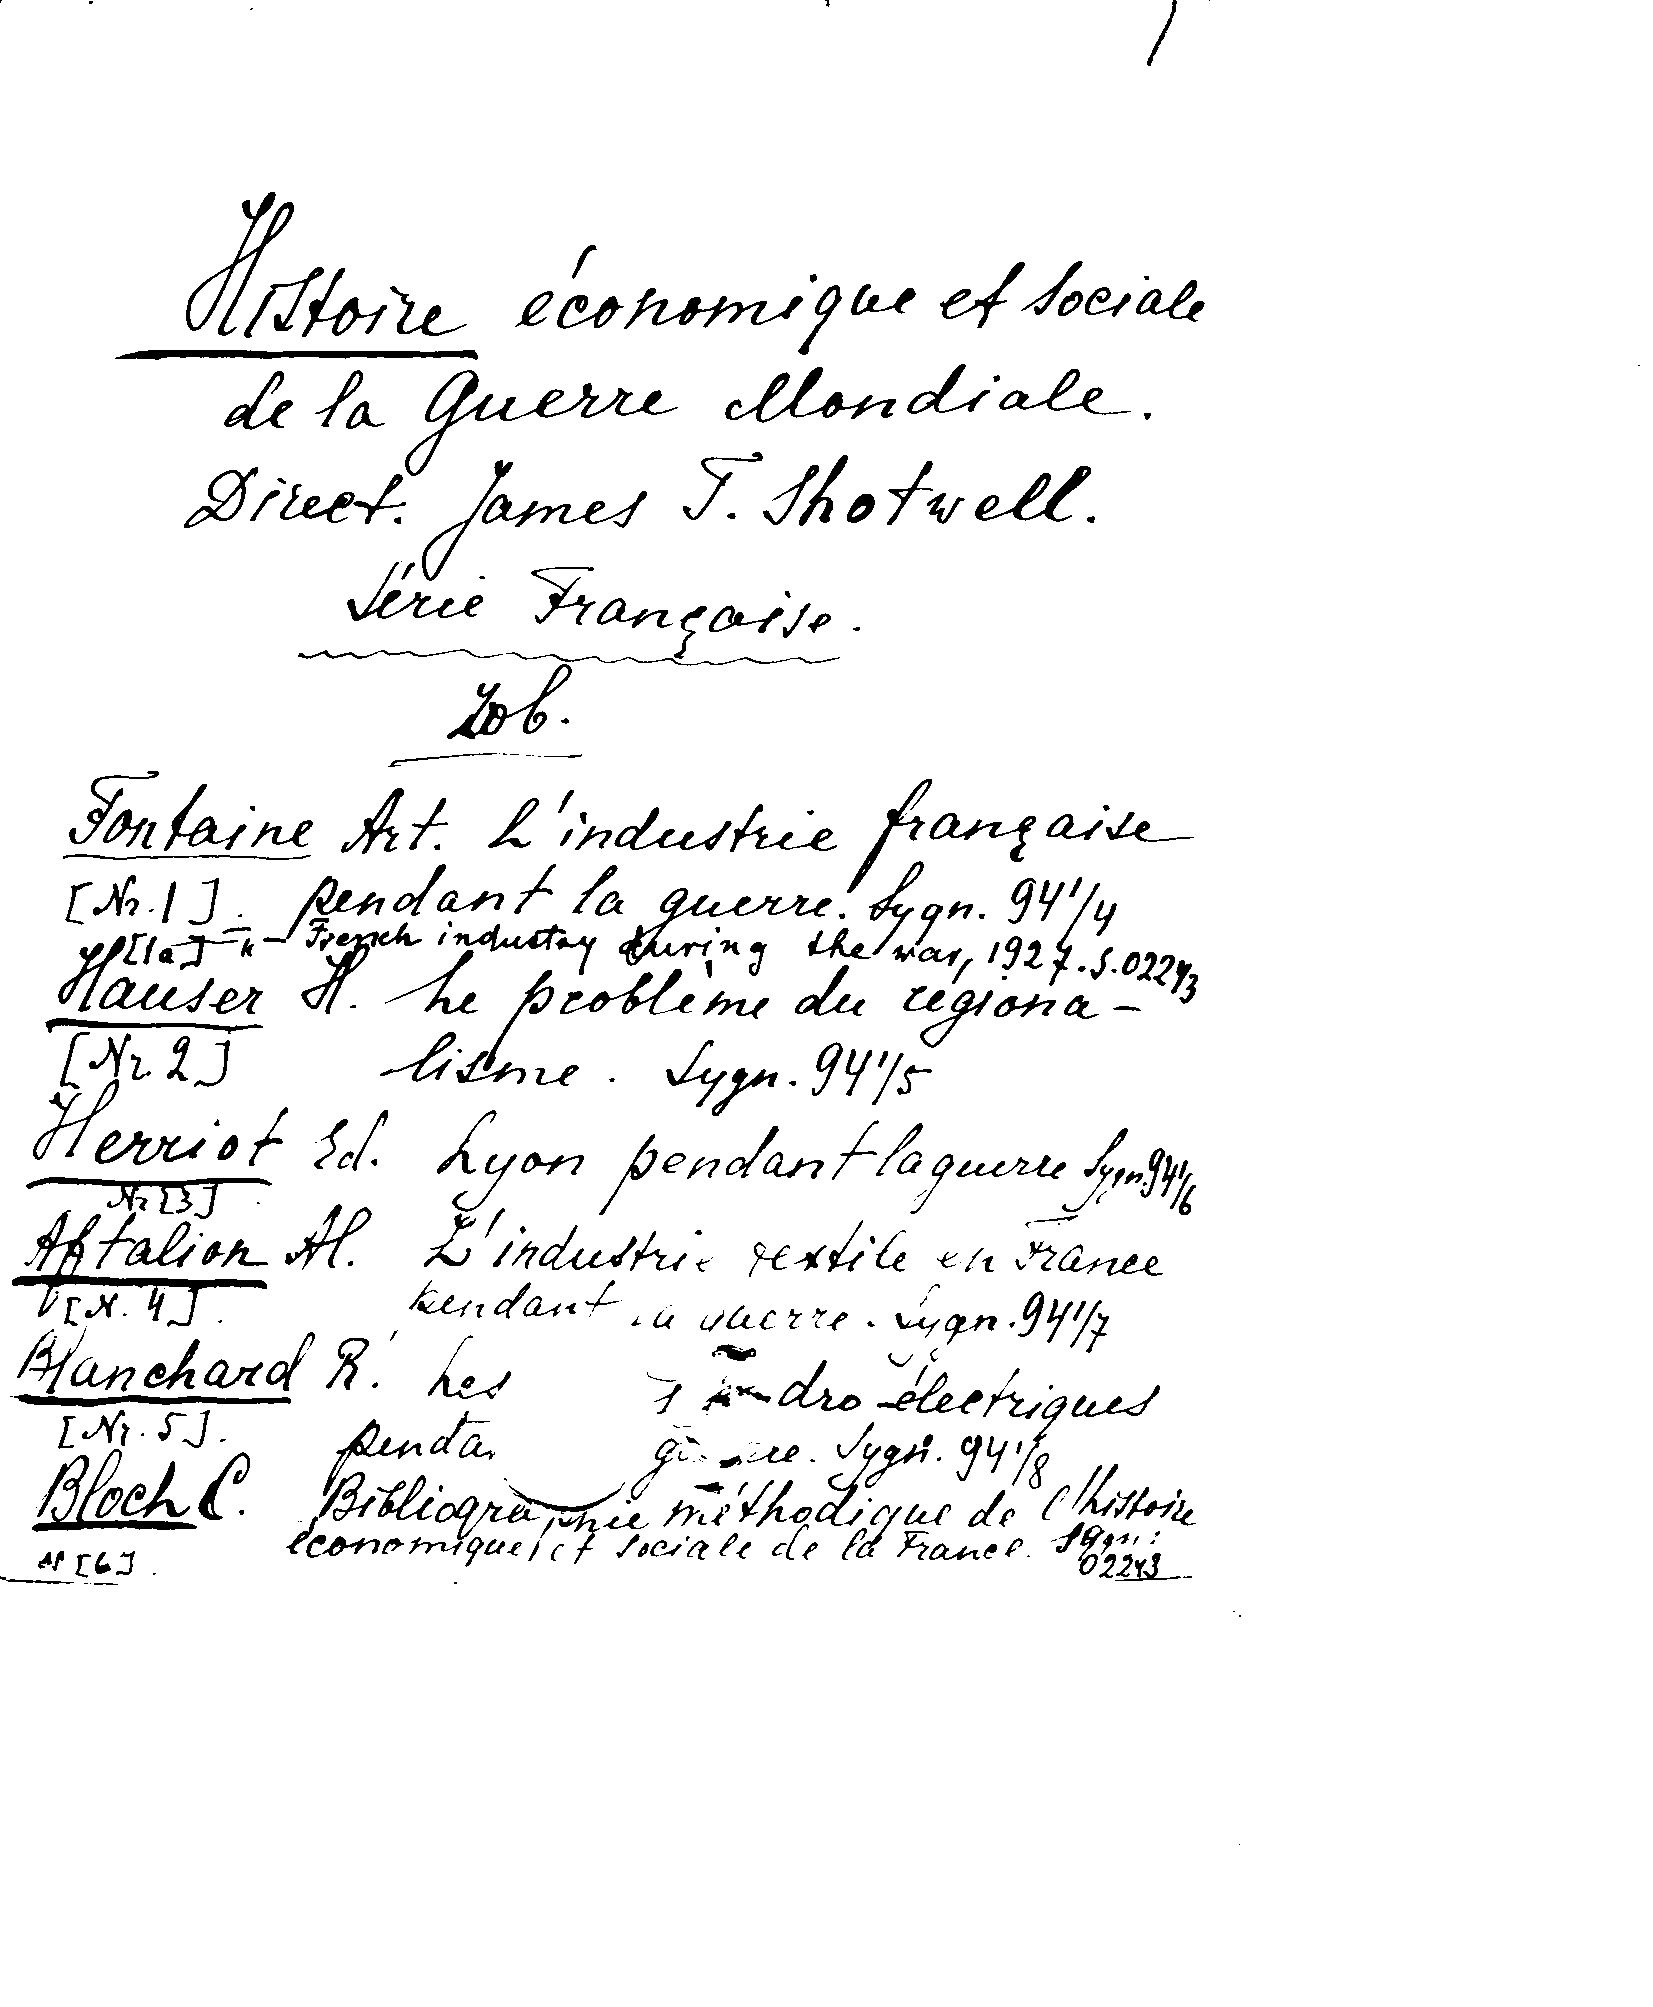 Histoire économique et sociale
de la Guerre Mondiale.
Direct. James T. Shotwell.
Série Française.
Zob.
Fontaine Art. L'industrie française
[Nr. 1]. pendant la guerre. Sygn. 941/4
[1a] —"— French industry during the war, 1927. S. 02243
Hauser H. Le problème du régiona-
[Nr. 2] lisme. Sygn. 941/5
Herriot Ed. Lyon pendant la guerre Sygn. 941/6
Nr [3]
Aftalion Al. L'industrie textile en France
[N. 4]. pendant la guerre. Sygn. 941/7
Blanchard R. Les dro-électriques
[Nr. 5]. penda. Sygn. 941/8
Bloch C. Bibliographie méthodique de l'histoire
économique et sociale de la France. Sygn:
N [6]. 02243